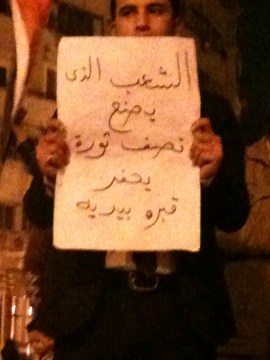 الشعب الذى
يصنع
نصف ثورة
يحفر
قبره بيديه